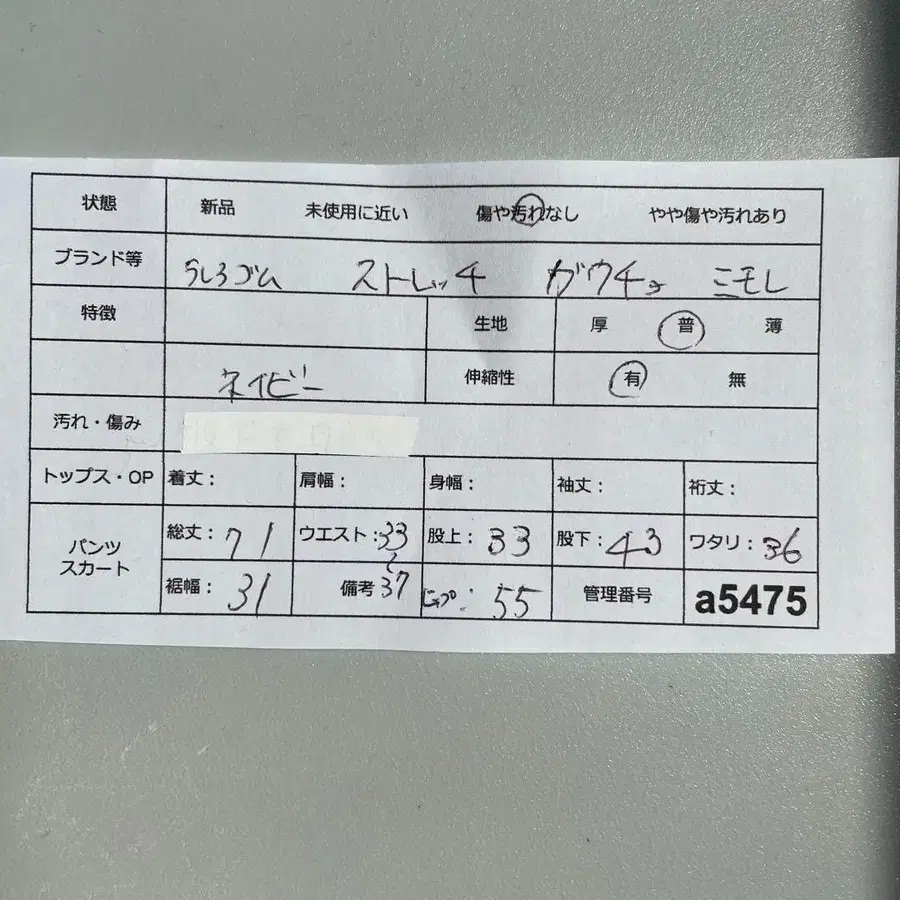 状態 新品 未使用に近い 傷や汚れなし やや傷や汚れあり
ブランド等 うしろゴム ストレッチ ガウチョ ミモレ
特徴 生地 厚 普 薄
ネイビー 伸縮性 有 無
汚れ・傷み
トップス・OP 着丈: 肩幅: 身幅: 袖丈: 裄丈:
パンツ スカート 総丈:71 ウエスト:33〜37 股上:33 股下:43 ワタリ:36
裾幅:31 備考 ヒップ:55 管理番号 a5475